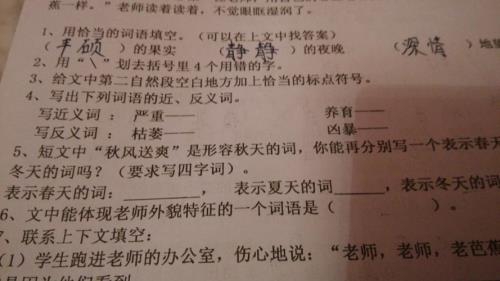 蕉一样。”老师读着读着，不觉眼眶湿润了。
1、用恰当的词语填空。（可以在上文中找答案）
（丰硕）的果实 （静静）的夜晚 （深情）地
2、用“\”划去括号里4个用错的字。
3、给文中第二自然段空白地方加上恰当的标点符号。
4、写出下列词语的近、反义词。
写近义词：严重—— 养育——
写反义词：枯萎—— 凶暴——
5、短文中“秋风送爽”是形容秋天的词，你能再分别写一个表示春天
冬天的词吗？（要求写四字词）。
表示春天的词：________，表示夏天的词______，表示冬天的词
6、文中能体现老师外貌特征的一个词语是（ ）。
7、联系上下文填空：
（1）学生跑进老师的办公室，伤心地说：“老师，老师，老芭蕉
是因为他们看到